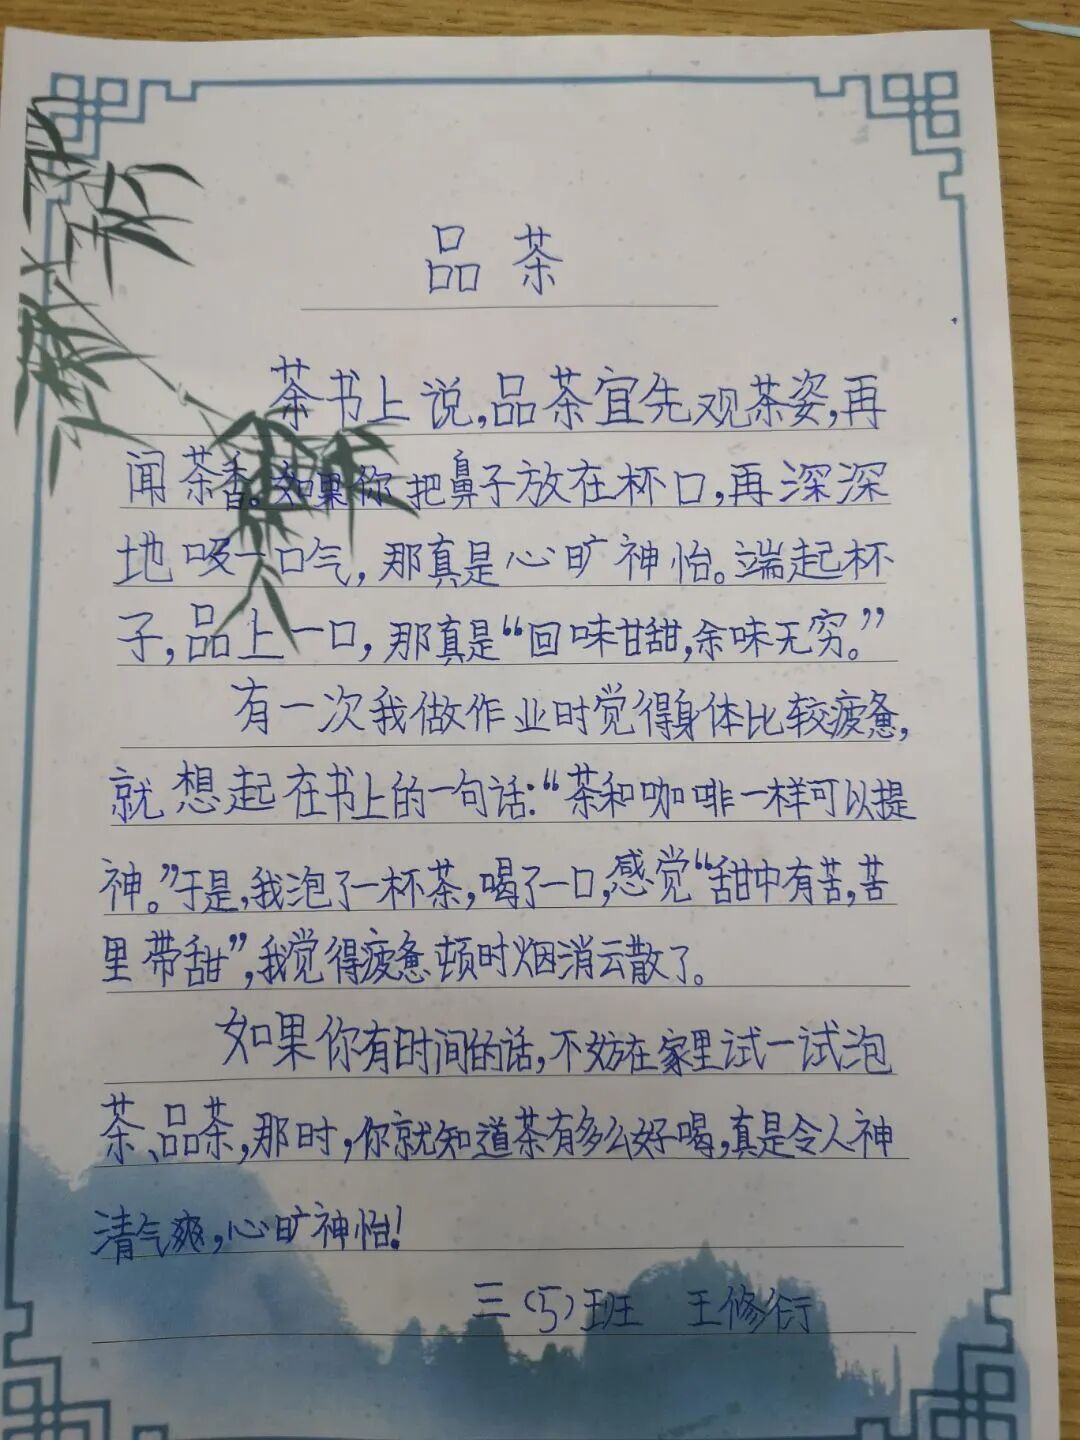 品茶
茶书上说,品茶宜先观茶姿,再
闻茶香。如果你把鼻子放在杯口,再深深
地吸一口气,那真是心旷神怡。端起杯
子,品上一口,那真是“回味甘甜,余味无穷。”
有一次我做作业时觉得身体比较疲惫,
就想起在书上的一句话:“茶和咖啡一样可以提
神。”于是,我泡了一杯茶,喝了一口,感觉“甜中有苦,苦
里带甜”,我觉得疲惫顿时烟消云散了。
如果你有时间的话,不妨在家里试一试泡
茶、品茶,那时,你就知道茶有多么好喝,真是令人神
清气爽,心旷神怡!
三(5)班 王修衍